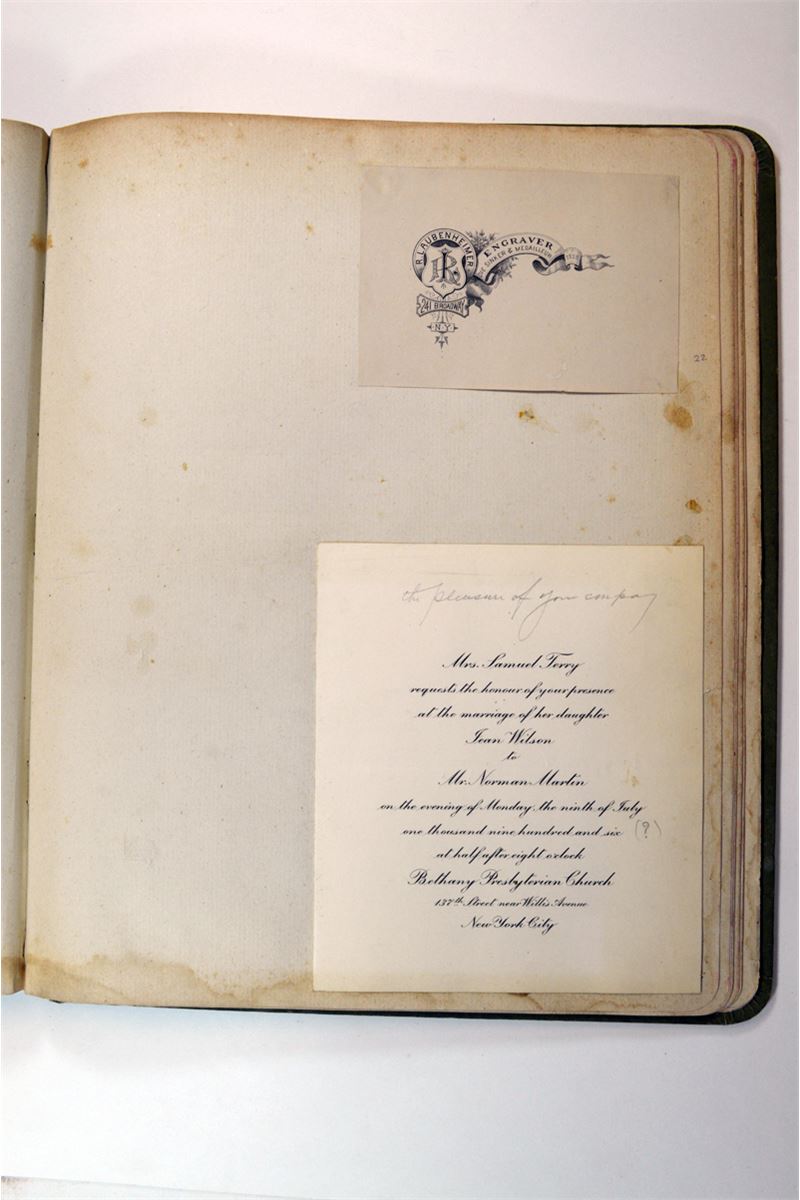 R. LAUBENHEIMER
LR
241 BROADWAY
N.Y.
ENGRAVER
DIE SINKER & MEDAILLEUR
22
the pleasure of your company
Mrs. Samuel Terry
requests the honour of your presence
at the marriage of her daughter
Jean Wilson
to
Mr. Norman Martin
on the evening of Monday, the ninth of July
one thousand nine hundred and six (?)
at half after eight o'clock
Bethany Presbyterian Church
137th Street near Willis Avenue
New York City